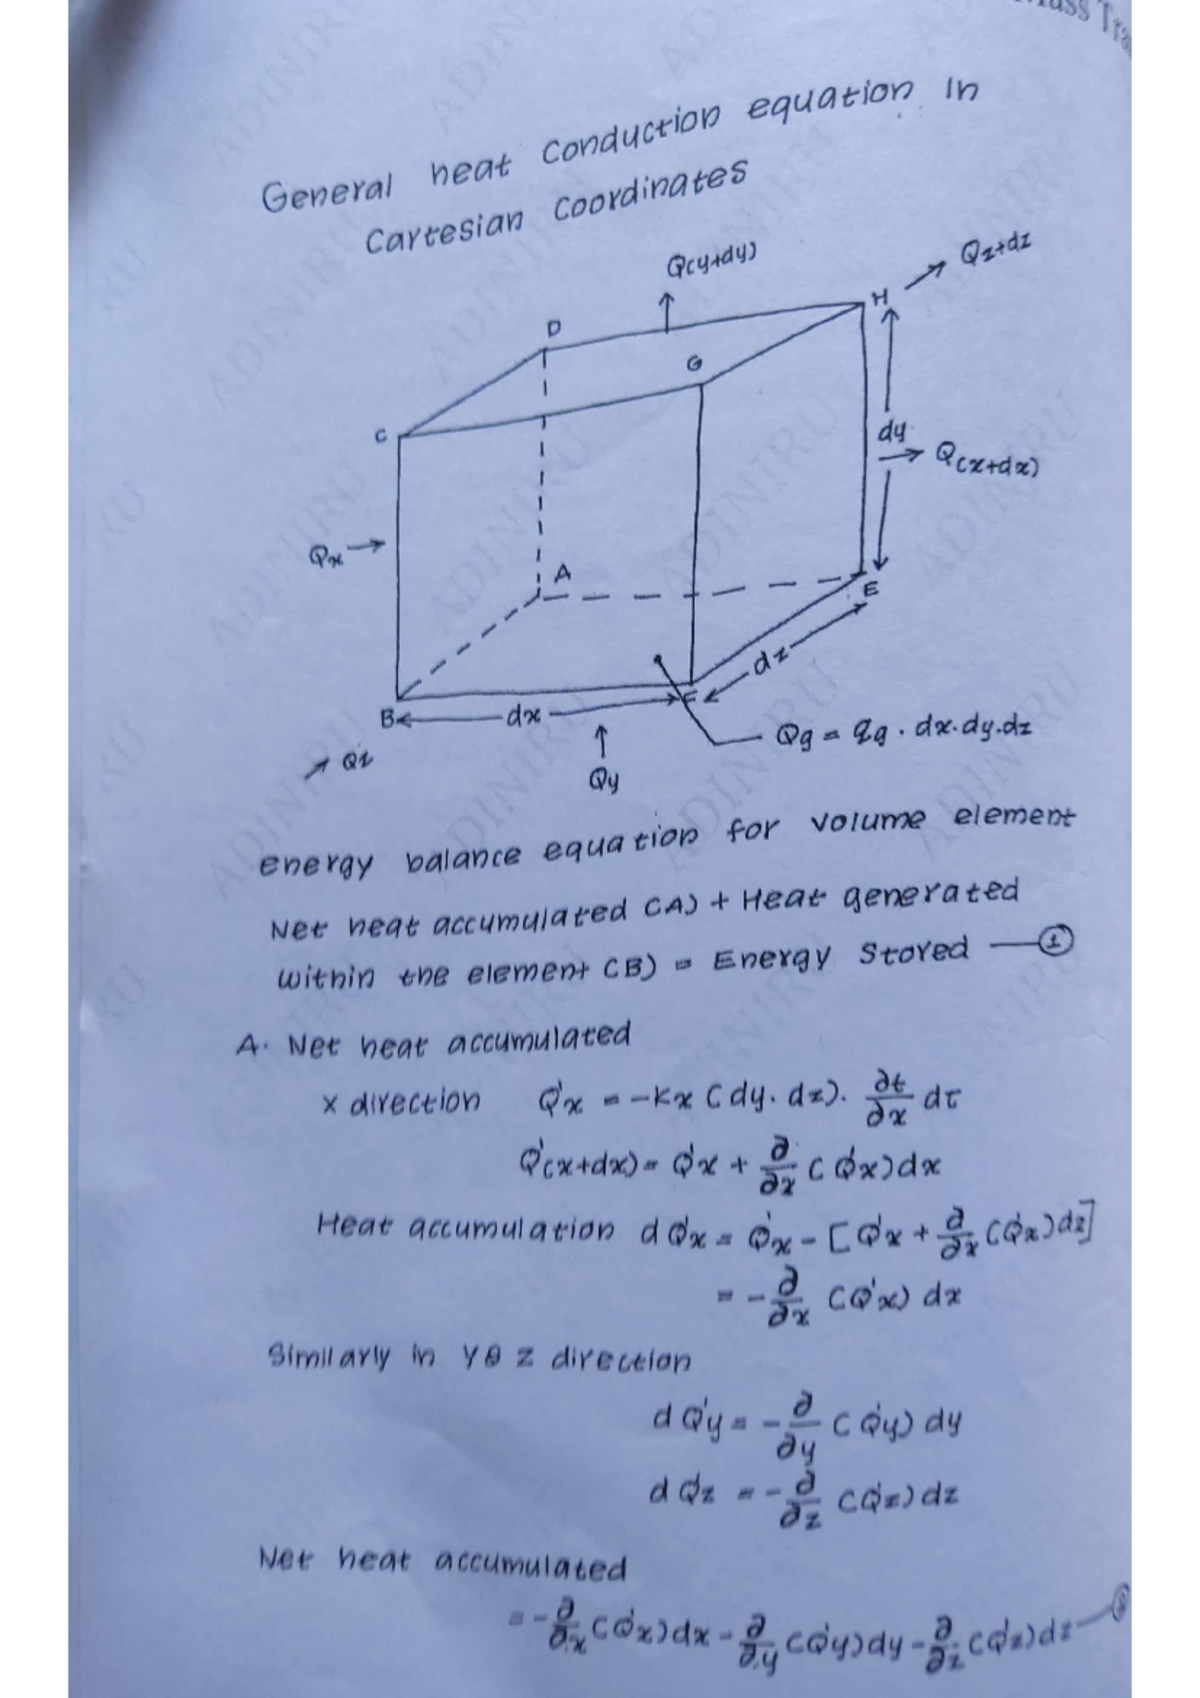 General heat conduction equation in
Cartesian coordinates
Q(y+dy)
Qz+dz
D
H
G
C
dy
Q(x+dx)
Qx →
A
E
dz
B
dx
F
Qg = qg . dx.dy.dz
Qz
Qy
energy balance equation for volume element
Net heat accumulated (A) + Heat generated
within the element (B) = Energy Stored —①
A. Net heat accumulated
x direction Q'x = -kx (dy. dz). ∂t/∂x dτ
Q'(x+dx) = Q'x + ∂/∂x (Q'x)dx
Heat accumulation dQ'x = Q'x - [Q'x + ∂/∂x (Q'x)dz]
= -∂/∂x (Q'x) dx
Similarly in Y & Z direction
dQ'y = -∂/∂y (Q'y) dy
dQ'z = -∂/∂z (Q'z) dz
Net heat accumulated
= -∂/∂x (Q'x)dx - ∂/∂y (Q'y)dy - ∂/∂z (Q'z)dz —
ADINIRU